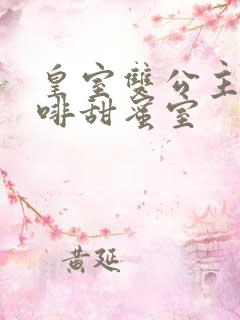 皇室雙公主
啡甜蜜室
黄延